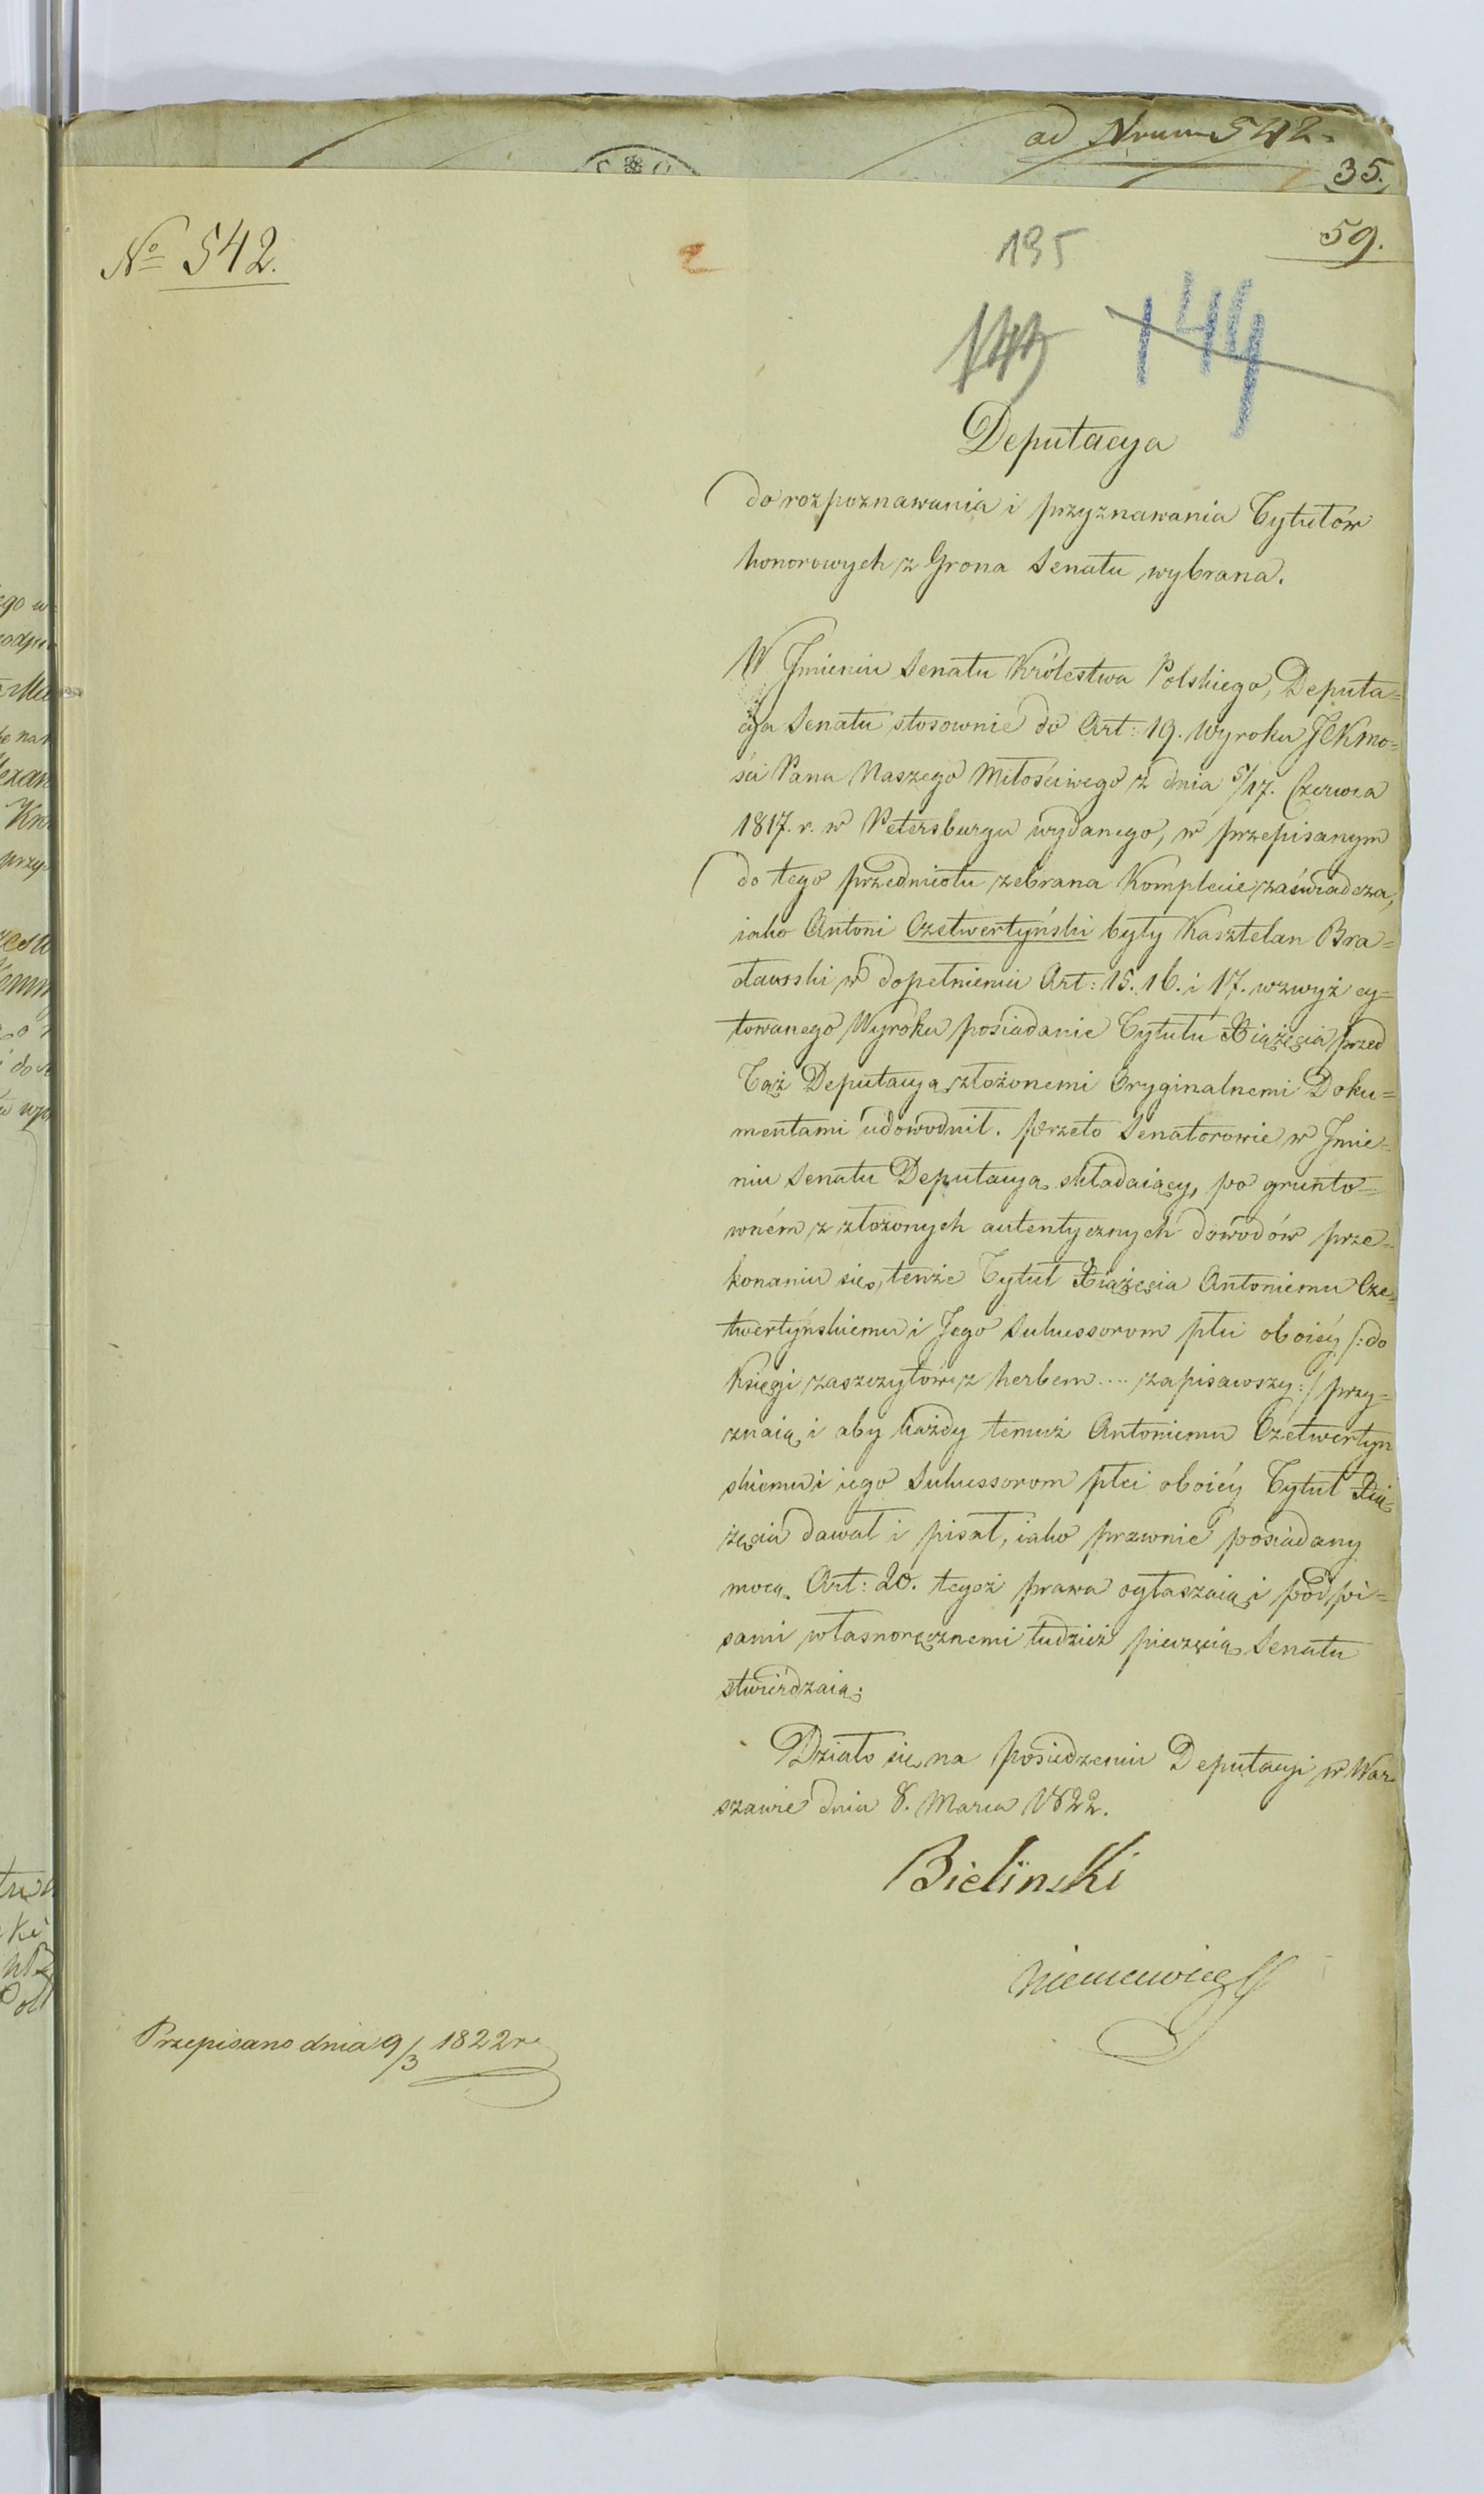 ad Nrum 542.
35.
59.
No 542.
195
144
Deputacya
do rozpoznawania i przyznawania Tytułów
honorowych z Grona Senatu wybrana.
W Jmieniu Senatu Królestwa Polskiego, Deputa=
cya Senatu stosownie do Art: 19. Wyroku JCKMo=
ści Pana Naszego Miłościwego z dnia 5/17. Czerwca
1817. r. w Petersburgu wydanego, w przepisanym
do tego przedmiotu zebrana Komplecie, zaświadcza,
iako Antoni Czetwertyński były Kasztelan Bra=
cławski w dopełnieniu Art: 15. 16. i 17. wzwyż cy=
towanego Wyroku posiadanie Tytułu Xiążęcia przed
Tąż Deputacyą złożonemi Oryginalnemi Doku=
mentami udowodnił. przeto Senatorowie w Jmie=
niu Senatu Deputacyą składaiący, po grunto=
wném z złożonych autentycznych dowodów prze=
konaniu się, tenże Tytuł Xiążęcia Antoniemu Cze=
twertyńskiemu i Jego Sukcessorom płci oboiéy /: do
Księgi zaszczytów z herbem .... zapisawszy :/ przy=
znaią i aby każdy temuż Antoniemu Czetwertyn
skiemu i iego Sukcessorom płci oboiéy Tytuł Xią
żęcia dawał i pisał, iako prawnie posiadany
mocą Art: 20. tegoż prawa ogłaszaią i podpi=
sami własnoręcznemi tudzież pieczęcią Senatu
stwierdzaią.
Działo się na posiedzeniu Deputacyi w War=
szawie dnia 8. Marca 1822.
Bielinski
Niemcewicz
Przepisano dnia 9/3 1822 r.